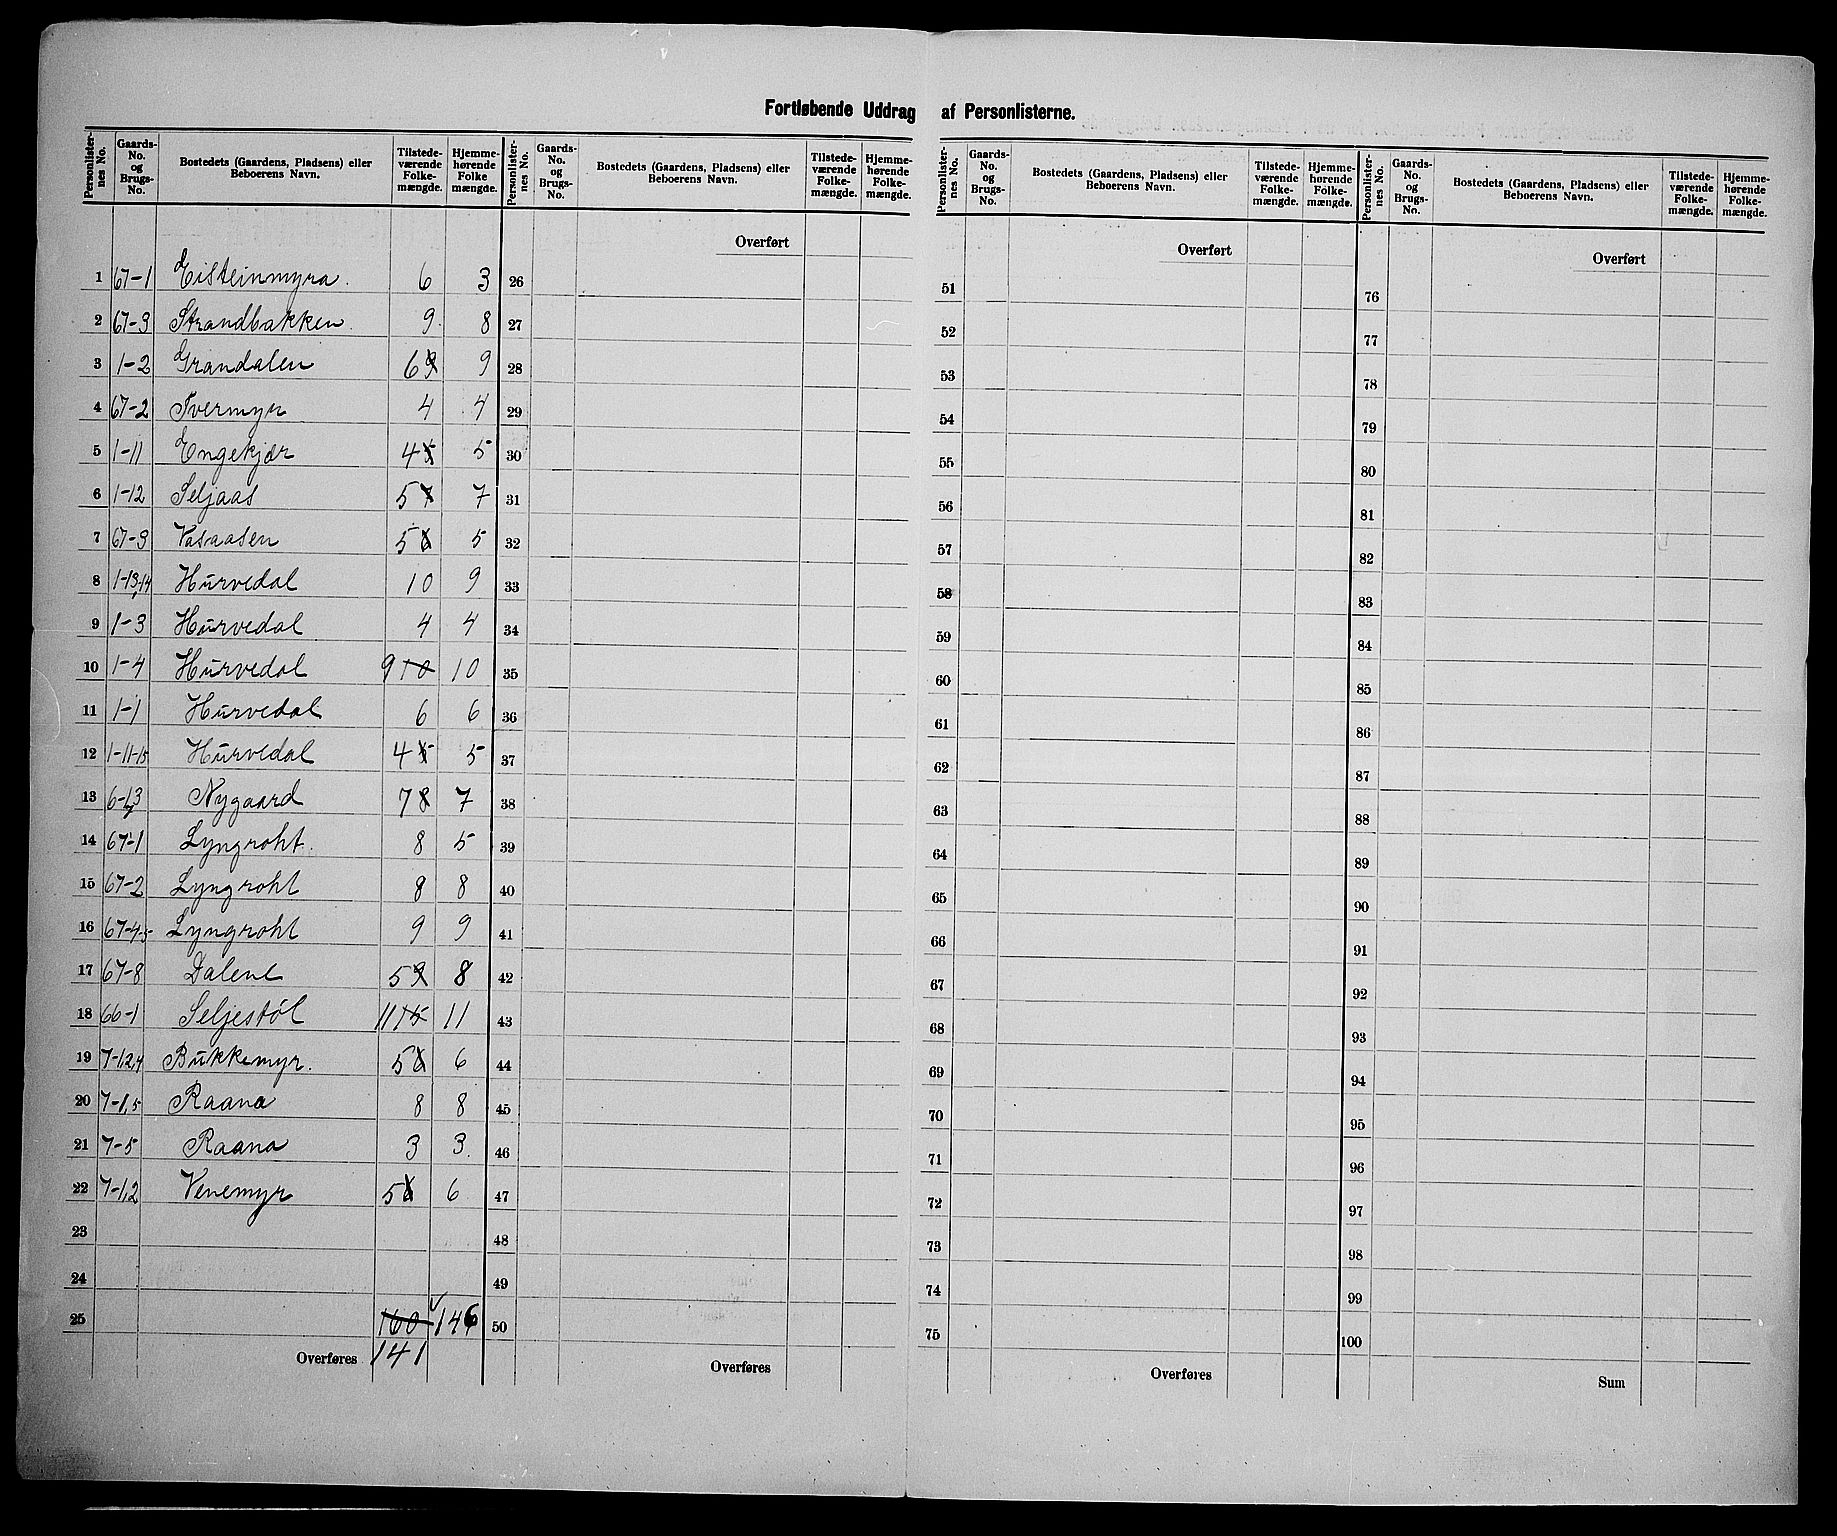 Fortløbende Uddrag af Personlisterne.
Personlister-nes No. Gaards-No. og Brugs-No. Bostedets (Gaardens, Pladsens) eller Beboerens Navn. Tilstede-værende Folke-mængde. Hjemme-hørende Folke mængde.
1 67-1 Eisteinmyra. 6 3
2 67-3 Strandbakken. 9. 8
3 1-2 Grandalen 6 9 9
4 67-2 Tvermyr 4 4
5 1-11 Engekjær 4 5 5
6 1-12 Seljaas 5 7 7
7 67-3 Vasaasen 5 6 5
8 1-13,14 Hurvedal 10 9
9 1-3 Hurvedal 4 4
10 1-4 Hurvedal 9 10 10
11 1-1 Hurvedal 6 6
12 1-11-15 Hurvedal 4 5 5
13 Nygaard 7 8 7
14 67-1 Lyngroht. 8 5
15 67-2 Lyngroht 8 8
16 67-4-5 Lyngroht 9 9
17 67-8 Dalene 5 9 8
18 66-1 Seljestøl 11 15 11
19 7-1,2,4 Bukkemyr. 5 6 6
20 7-1,5 Raana 8 8
21 7-5 Raana 3 3.
22 7-1,2 Venemyr 5 6 6
23
24
25 160 146
Overføres 141
Personlister-nes No. Gaards-No. og Brugs-No. Bostedets (Gaardens, Pladsens) eller Beboerens Navn. Tilstede-værende Folke-mængde. Hjemme-hørende Folke-mængde.
Overført
26
27
28
29
30
31
32
33
34
35
36
37
38
39
40
41
42
43
44
45
46
47
48
49
50
Overføres
Personlister-nes No. Gaards-No. og Brugs-No. Bostedets (Gaardens, Pladsens) eller Beboerens Navn. Tilstede-værende Folke-mængde. Hjemme-hørende Folke-mængde.
Overført
51
52
53
54
55
56
57
58
59
60
61
62
63
64
65
66
67
68
69
70
71
72
73
74
75
Overføres
Personlister-nes No. Gaards-No. og Brugs-No. Bostedets (Gaardens, Pladsens) eller Beboerens Navn. Tilstede-værende Folke-mængde. Hjemme-hørende Folke-mængde.
Overført
76
77
78
79
80
81
82
83
84
85
86
87
88
89
90
91
92
93
94
95
96
97
98
99
100
Sum